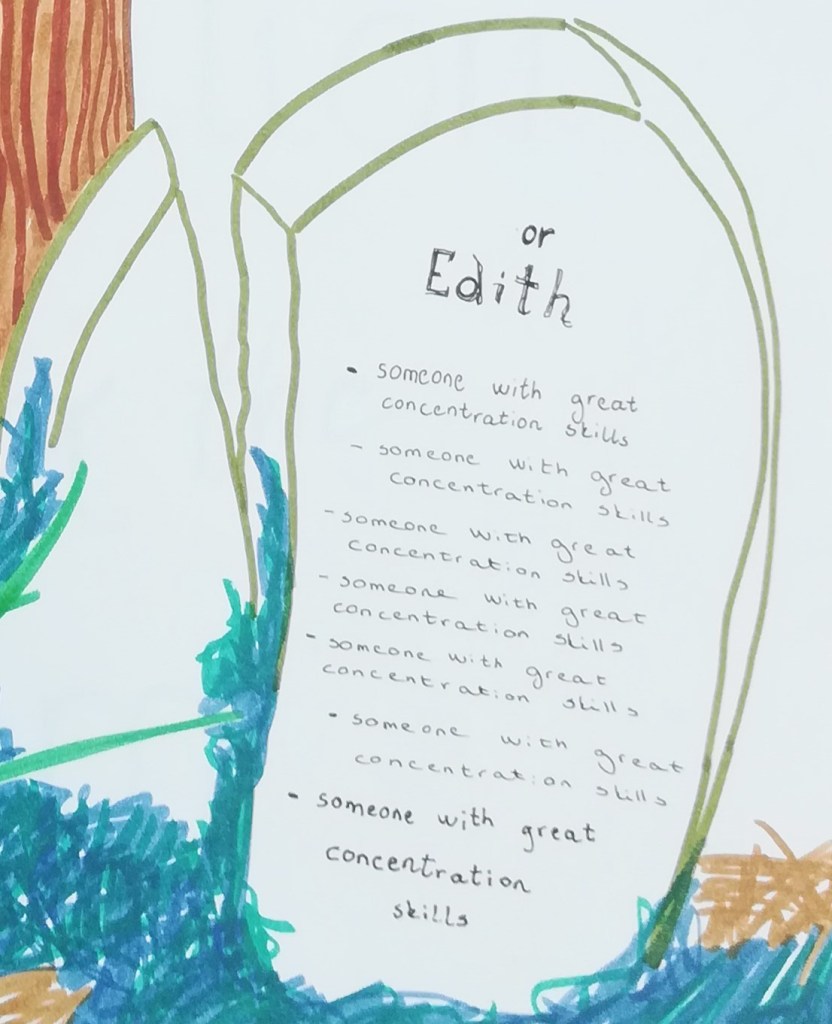 or
Edith
- someone with great
concentration skills
- someone with great
concentration skills
- someone with great
concentration skills
- someone with great
concentration skills
- someone with great
concentration skills
- someone with great
concentration skills
- someone with great
concentration
skills